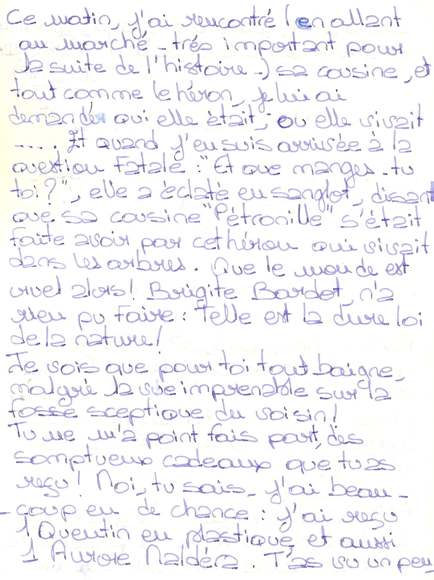 Ce matin, j'ai rencontré (en allant
au marché - très important pour
la suite de l'histoire -) sa cousine, et
tout comme le héron, je lui ai
demandé qui elle était, où elle vivait
.... Et quand j'en suis arrivée à la
question fatale : "Et que manges-tu
toi?", elle a éclaté en sanglot, disant
que sa cousine "Pétronille" s'était
faite avoir par cet héron qui vivait
dans les arbres. Que le monde est
cruel alors! Brigite Bardot, n'a
rien pu faire : Telle est la dure loi
de la nature!
Je vois que pour toi tout baigne,
malgré la vue imprenable sur la
fosse sceptique du voisin!
Tu ne m'a point fais part, des
somptueux cadeaux que tu as
reçu! Moi, tu sais, j'ai beau-
-coup eu de chance : j'ai reçu
1 Quentin en plastique et aussi
1 Aurore Naldéa. T'as vu un peu